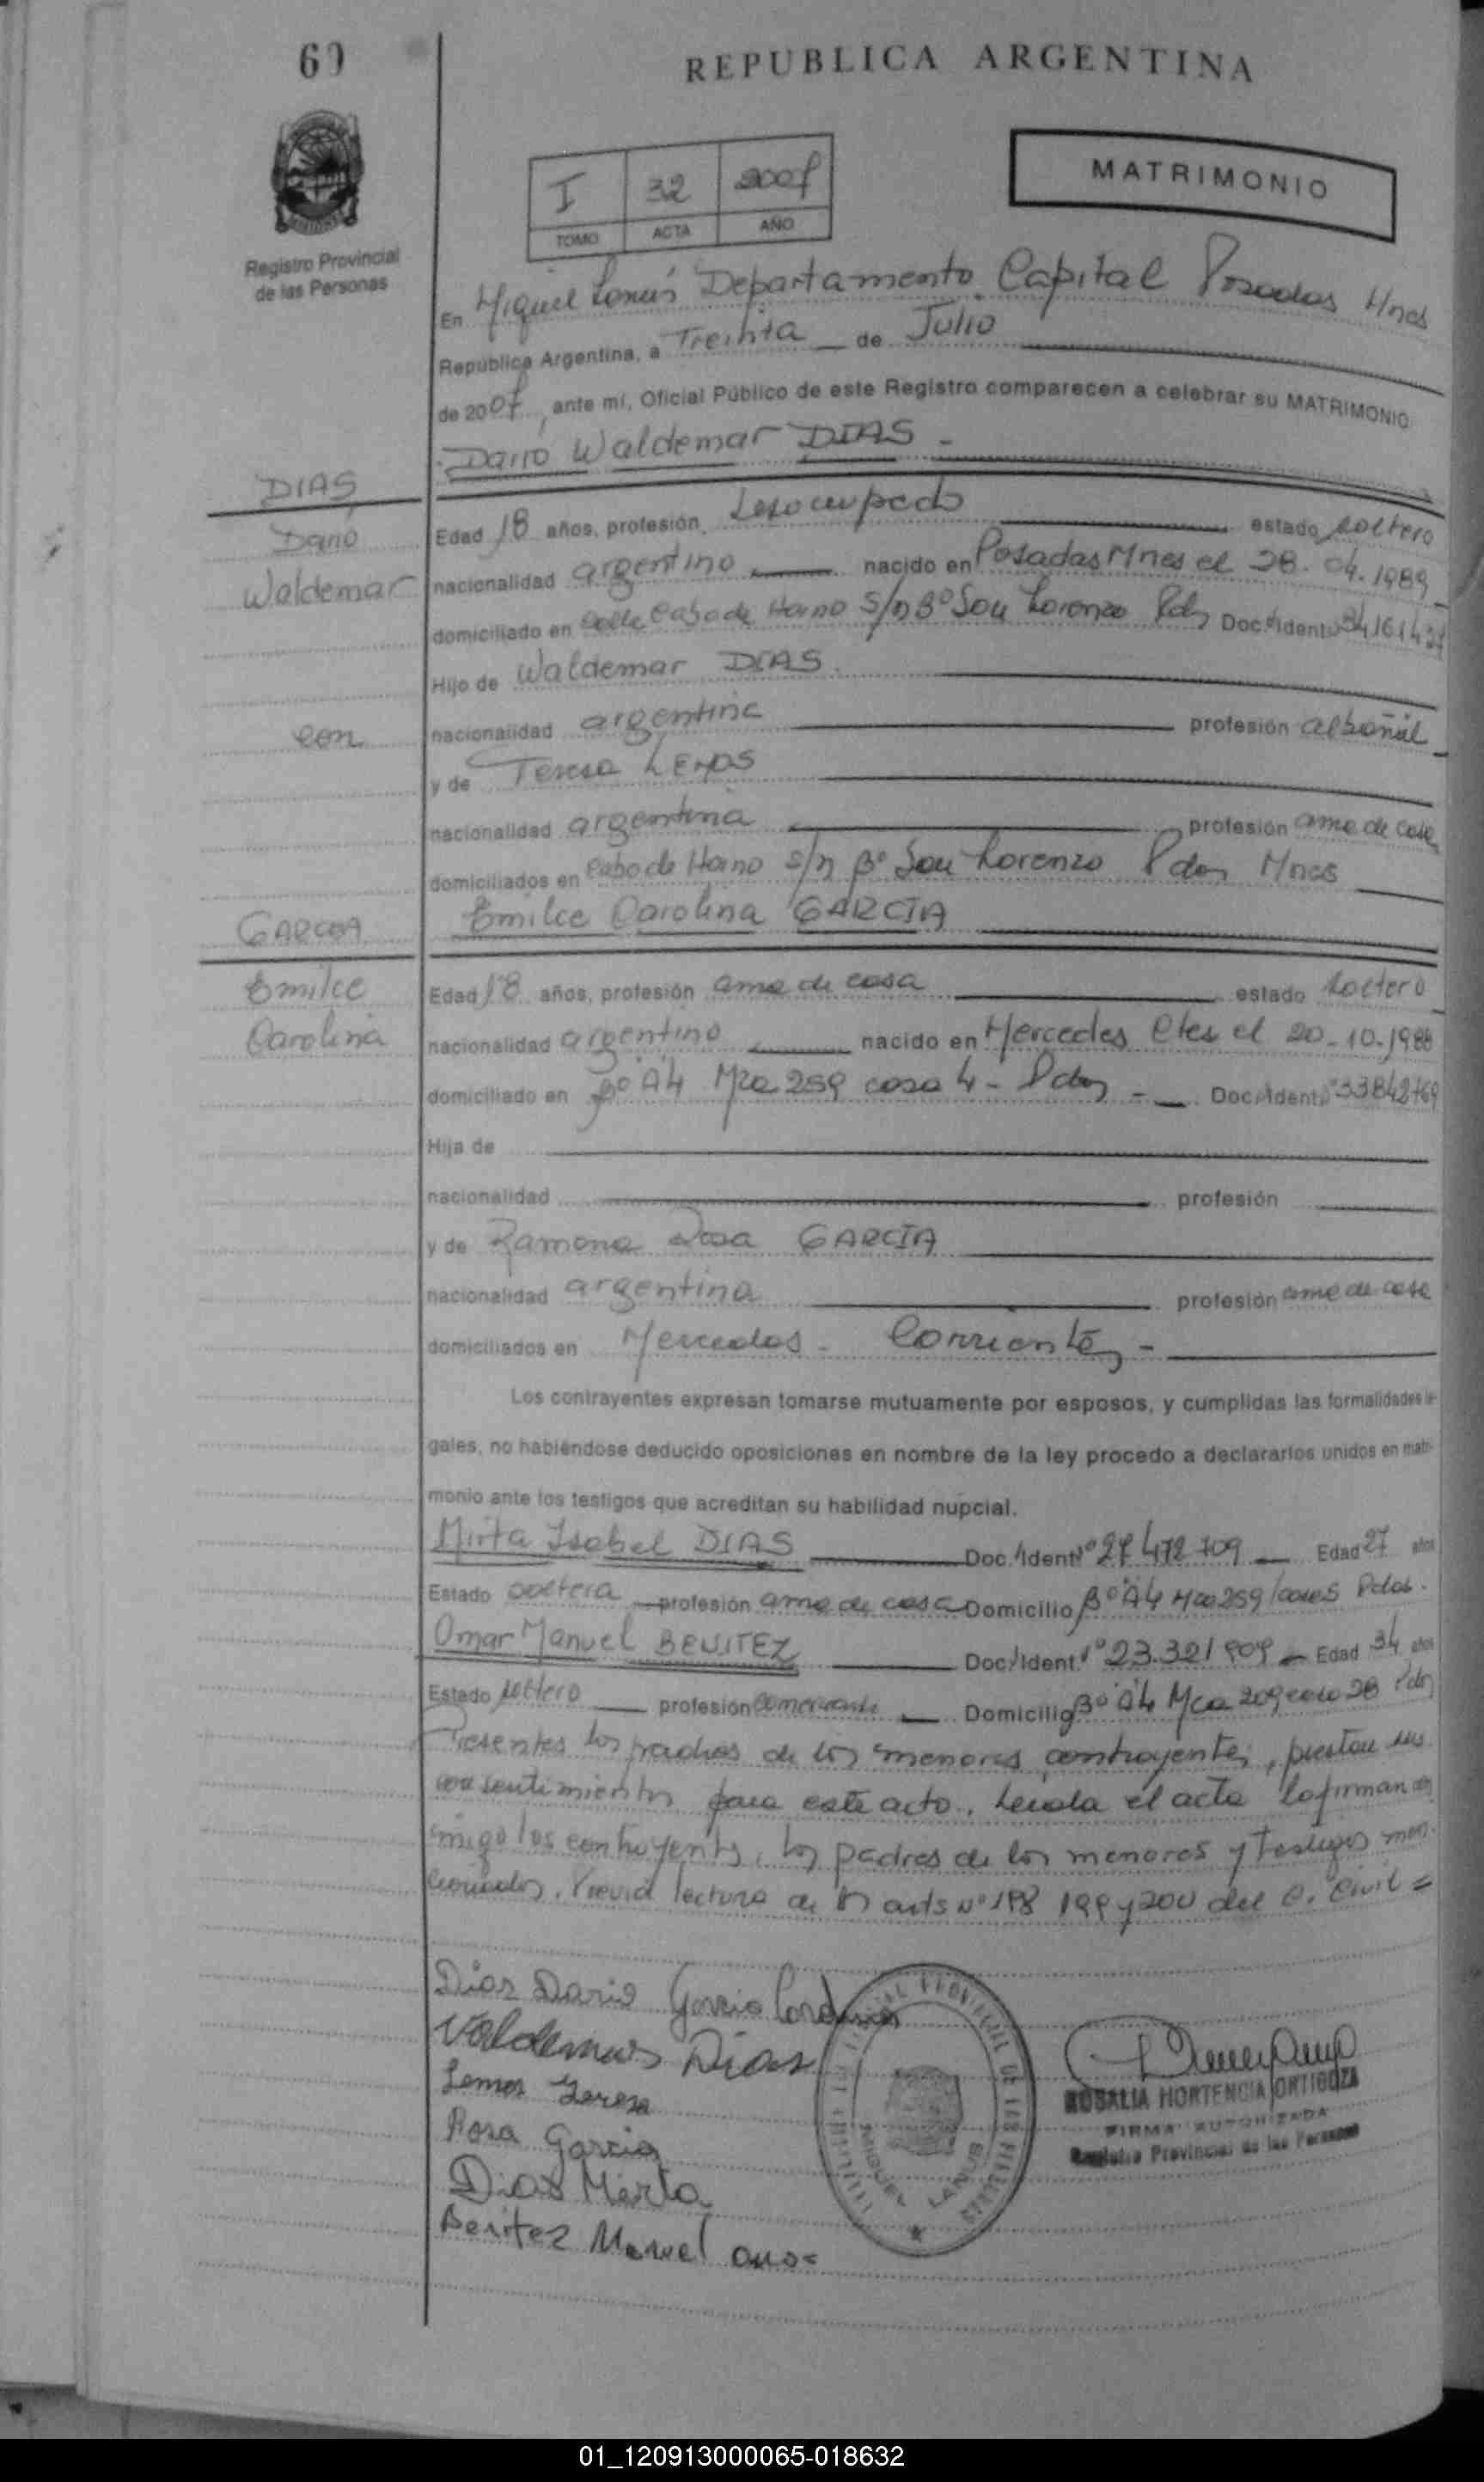 60
REPUBLICA ARGENTINA
I 32 2007
TOMO ACTA AÑO
MATRIMONIO
Registro Provincial
de las Personas
En Miguel Lanús Departamento Capital Posadas Mnes
República Argentina, a Treinta de Julio
de 2007, ante mí, Oficial Público de este Registro comparecen a celebrar su MATRIMONIO
Darío Waldemar DIAS -
DIAS
Darío
Waldemar
Edad 18 años, profesión desocupado estado soltero
nacionalidad argentino nacido en Posadas Mnes el 28.04.1989
domiciliado en Calle Cabo de Horno S/n Bº San Lorenzo Pdas Doc. Ident.
Hijo de Waldemar DIAS.
con
nacionalidad argentina profesión albañil
y de Teresa LEMOS
nacionalidad argentina profesión ama de casa
domiciliados en Cabo de Horno s/n Bº San Lorenzo Pdas Mnes
Emilce Carolina GARCIA
GARCIA
Emilce
Carolina
Edad 18 años, profesión ama de casa estado soltero
nacionalidad argentino nacido en Mercedes Ctes el 20-10-1988
domiciliado en Bº A4 Mza 259 casa 4 - Pdas - Doc. Ident. 33842769
Hija de
nacionalidad profesión
y de Ramona Rosa GARCIA
nacionalidad argentina profesión ama de casa
domiciliados en Mercedes - Corrientes -
Los contrayentes expresan tomarse mutuamente por esposos, y cumplidas las formalidades le-
gales, no habiéndose deducido oposiciones en nombre de la ley procedo a declararlos unidos en matri-
monio ante los testigos que acreditan su habilidad nupcial.
Mirta Isabel DIAS Doc. Ident. Nº 27 472 709 Edad 27 años
Estado soltera profesión ama de casa Domicilio Bº A4 Mza 259/casa 5 Pdas.
Omar Manuel BENITEZ Doc. Ident. Nº 23.321 909 Edad 34 años
Estado soltero profesión comerciante Domicilio Bº A4 Mza 209 casa 28 Pdas
Presentes los padres de los menores contrayentes, prestan sus
consentimientos para este acto. Leída el acta la firman con
migo los contrayentes, los padres de los menores y testigos men-
cionados. Previa lectura de los arts Nº 198 199 y 200 del C. Civil =
Dias Dario Garcia Carolina
Valdemar Dias
Lemos Teresa
Rosa Garcia
Dias Mirta
Benitez Manuel Omar
MIGUEL LANUS
ROSALIA HORTENCIA ORTIGOZA
FIRMA AUTORIZADA
Registro Provincial de las Personas
01_120913000065-018632